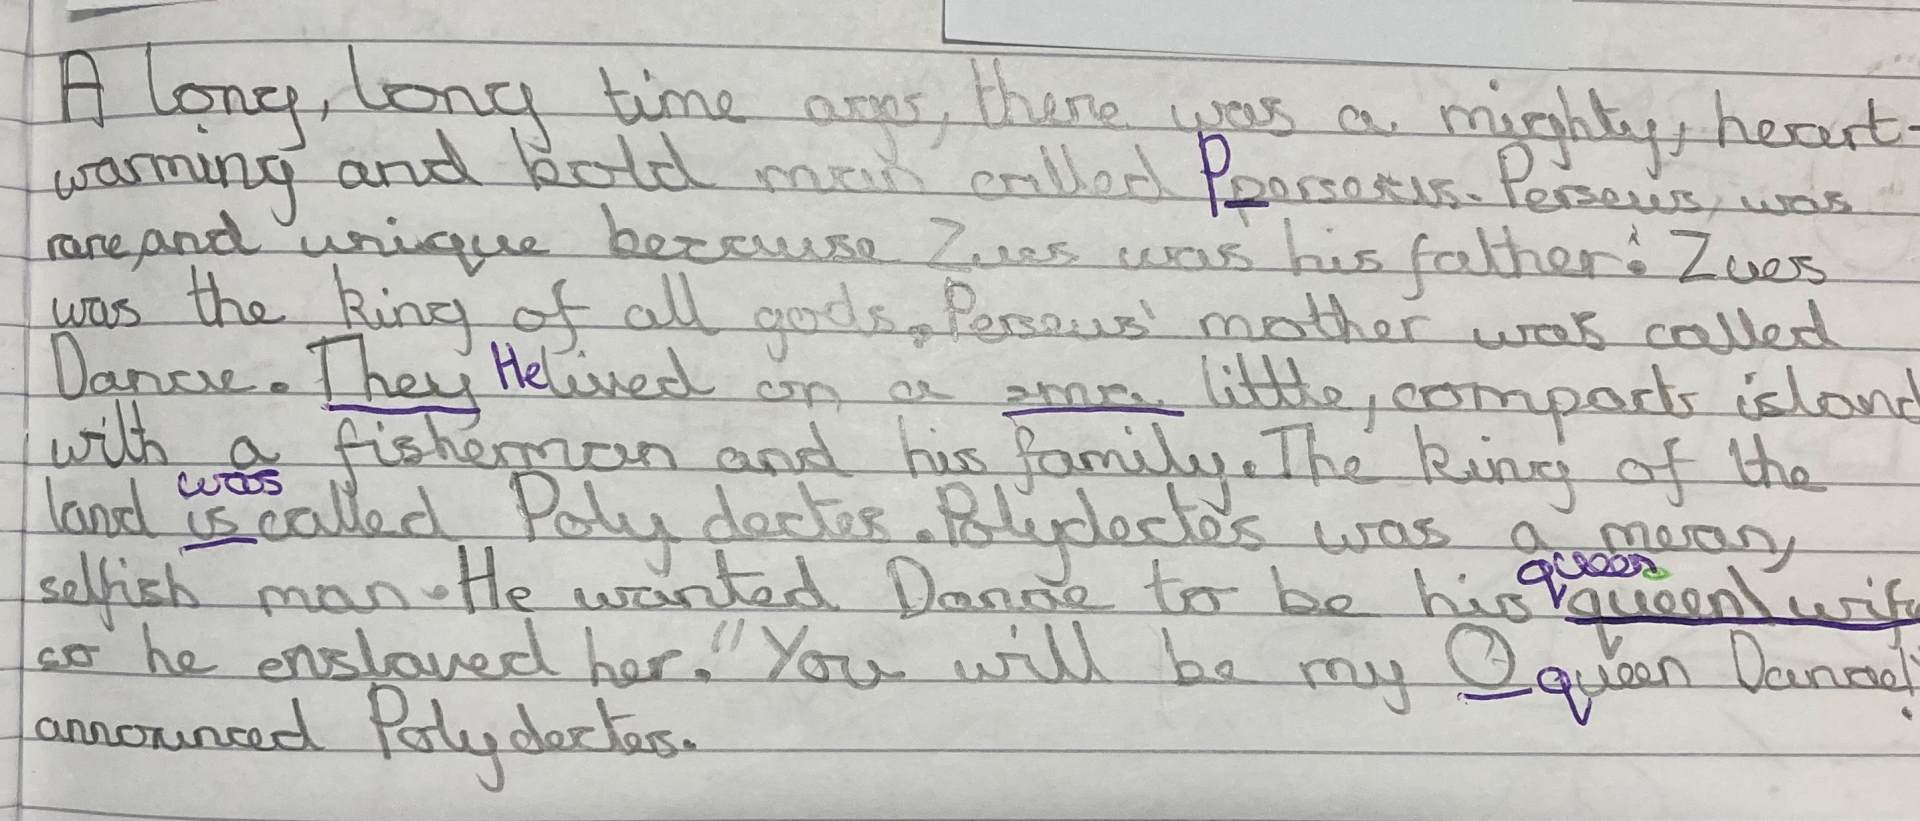 A long, long time ago, there was a mighty, heart-
warming and bold man called Pperseus. Perseus, was
rare, and unique because Zues was his father. Zues
was the king of all gods. Perseus' mother was called
Danae. They He lived on a sma little, compact island
with a fisherman and his family. The king of the
land is was called Poly dectes. Polydectes was a mean,
selfish man. He wanted Danae to be his queen queen wife
so he enslaved her. "You will be my Q queen Danae!"
announced Polydectes.